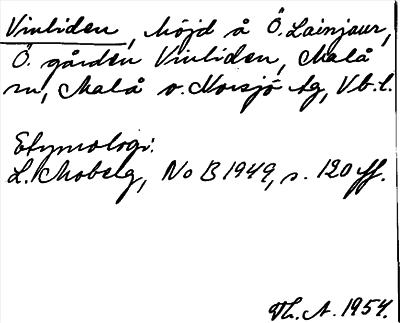 Vinliden, höjd å Ö. Lainjaur,
Ö. gården Vinliden, Malå
sn, Malå o. Norsjö tg, Vb. l.
Etymologi:
L. Moberg, NoB 1949, s. 120 ff.
Th. A. 1954.